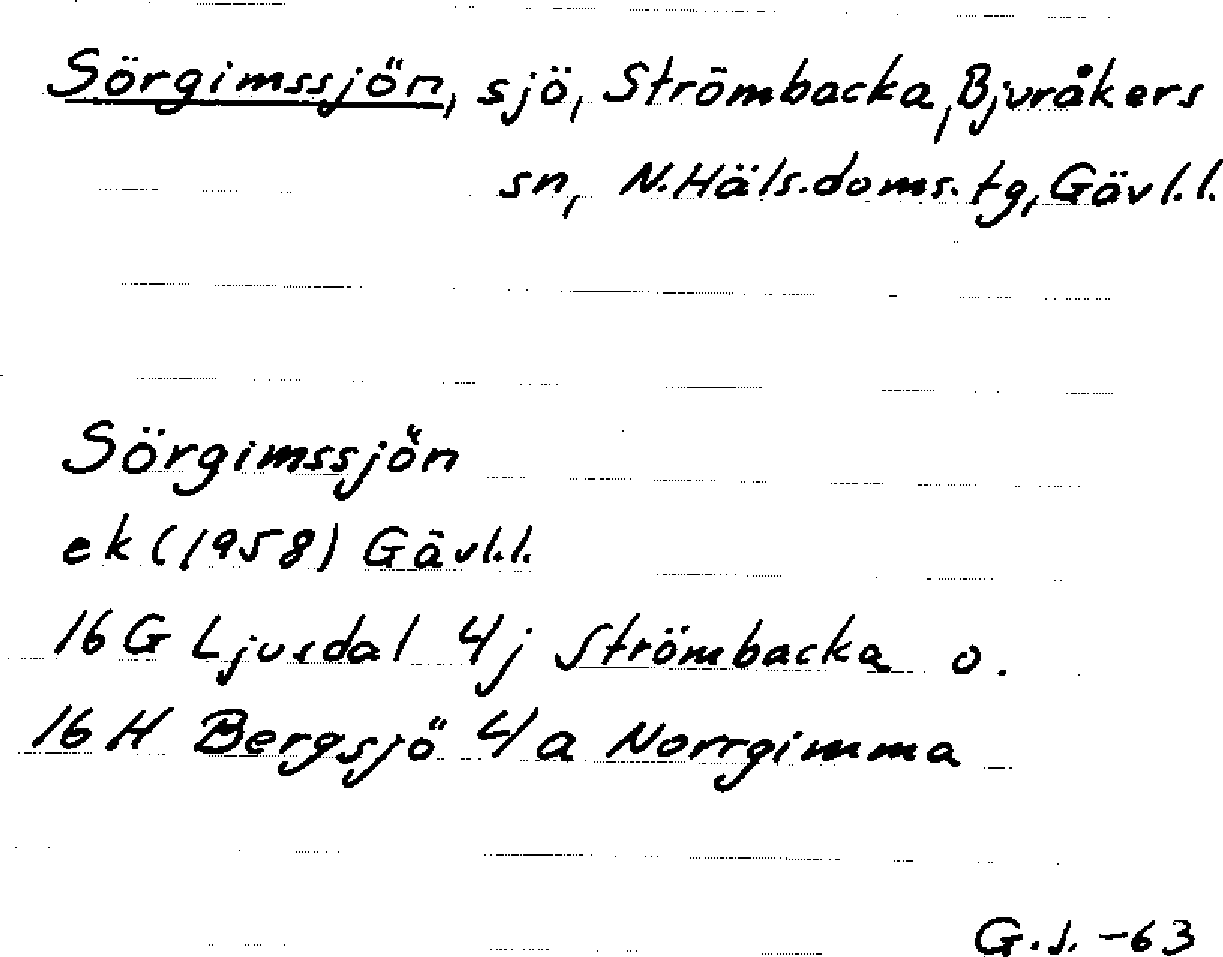 Sörgimssjön, sjö, Strömbacka, Bjuråkers
sn, N.Häls.doms.tg, Gävl.l.
Sörgimssjön
ek (1958) Gävl.l.
16 G Ljusdal 4j Strömbacka o.
16 H Bergsjö 4a Norrgimma
G.J. -63